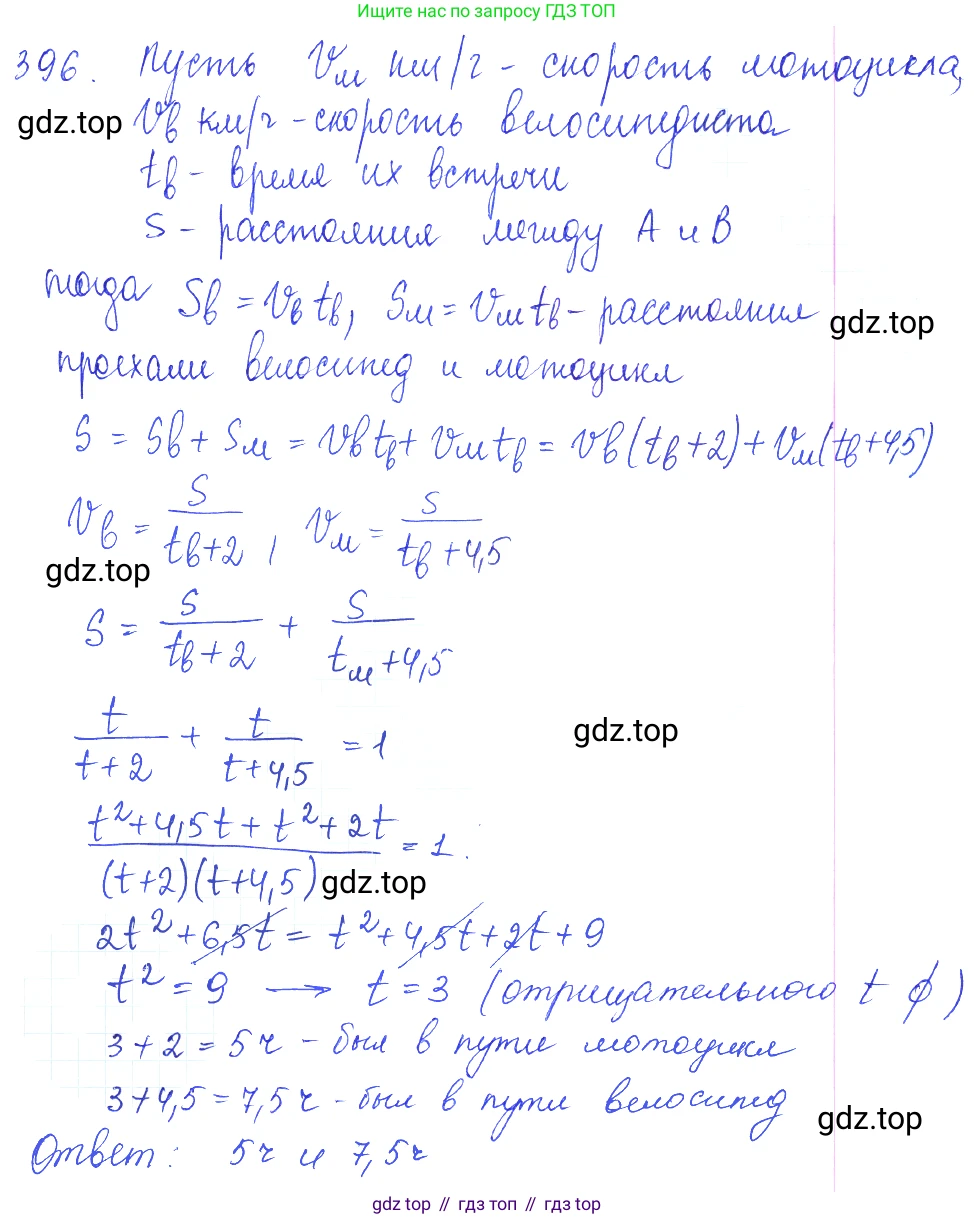 Ищите нас по запросу ГДЗ ТОП
396. Пусть Vм км/ч - скорость мотоцикла,
gdz.top Vв км/ч - скорость велосипедиста
tв - время их встречи
S - расстояния между А и В
тогда Sв = Vв tв, Sм = Vм tв - расстояния
gdz.top
проехали велосипед и мотоцикл
S = Sв + Sм = Vв tв + Vм tв = Vв (tв + 2) + Vм (tв + 4,5)
Vв = S/(tв + 2), Vм = S/(tв + 4,5)
gdz.top
S = S/(tв + 2) + S/(tм + 4,5)
t/(t + 2) + t/(t + 4,5) = 1
gdz.top
(t² + 4,5t + t² + 2t)/((t + 2)(t + 4,5)) = 1.
gdz.top
2t² + 6,5t = t² + 4,5t + 2t + 9
t² = 9 → t = 3 (отрицательного t ∅)
3 + 2 = 5 ч - был в пути мотоцикл
3 + 4,5 = 7,5 ч - был в пути велосипед
gdz.top
Ответ: 5ч и 7,5ч
gdz top // гдз топ // гдз top